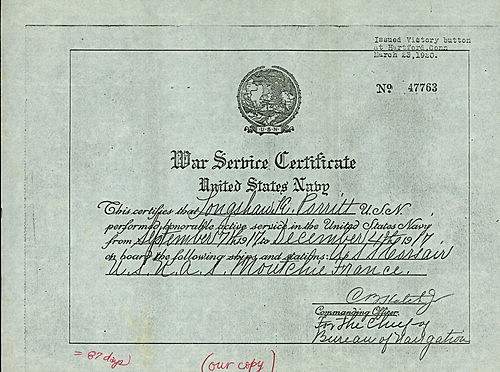 Issued Victory button
at Hartford.Conn
March 23,1920.
No 47763
U.S.N.
War Service Certificate
United States Navy
This certifies that Longshaw K. Porritt U.S.N.
performed honorable active service in the United States Navy
from September 7th 1917 to December 4th 1917
on board the following ships and stations: U.S.S.
U.S.N.A.S. Moutchic France.
Commanding Officer
For the Chief of
Bureau of Navigation
= 87 days
(our copy)